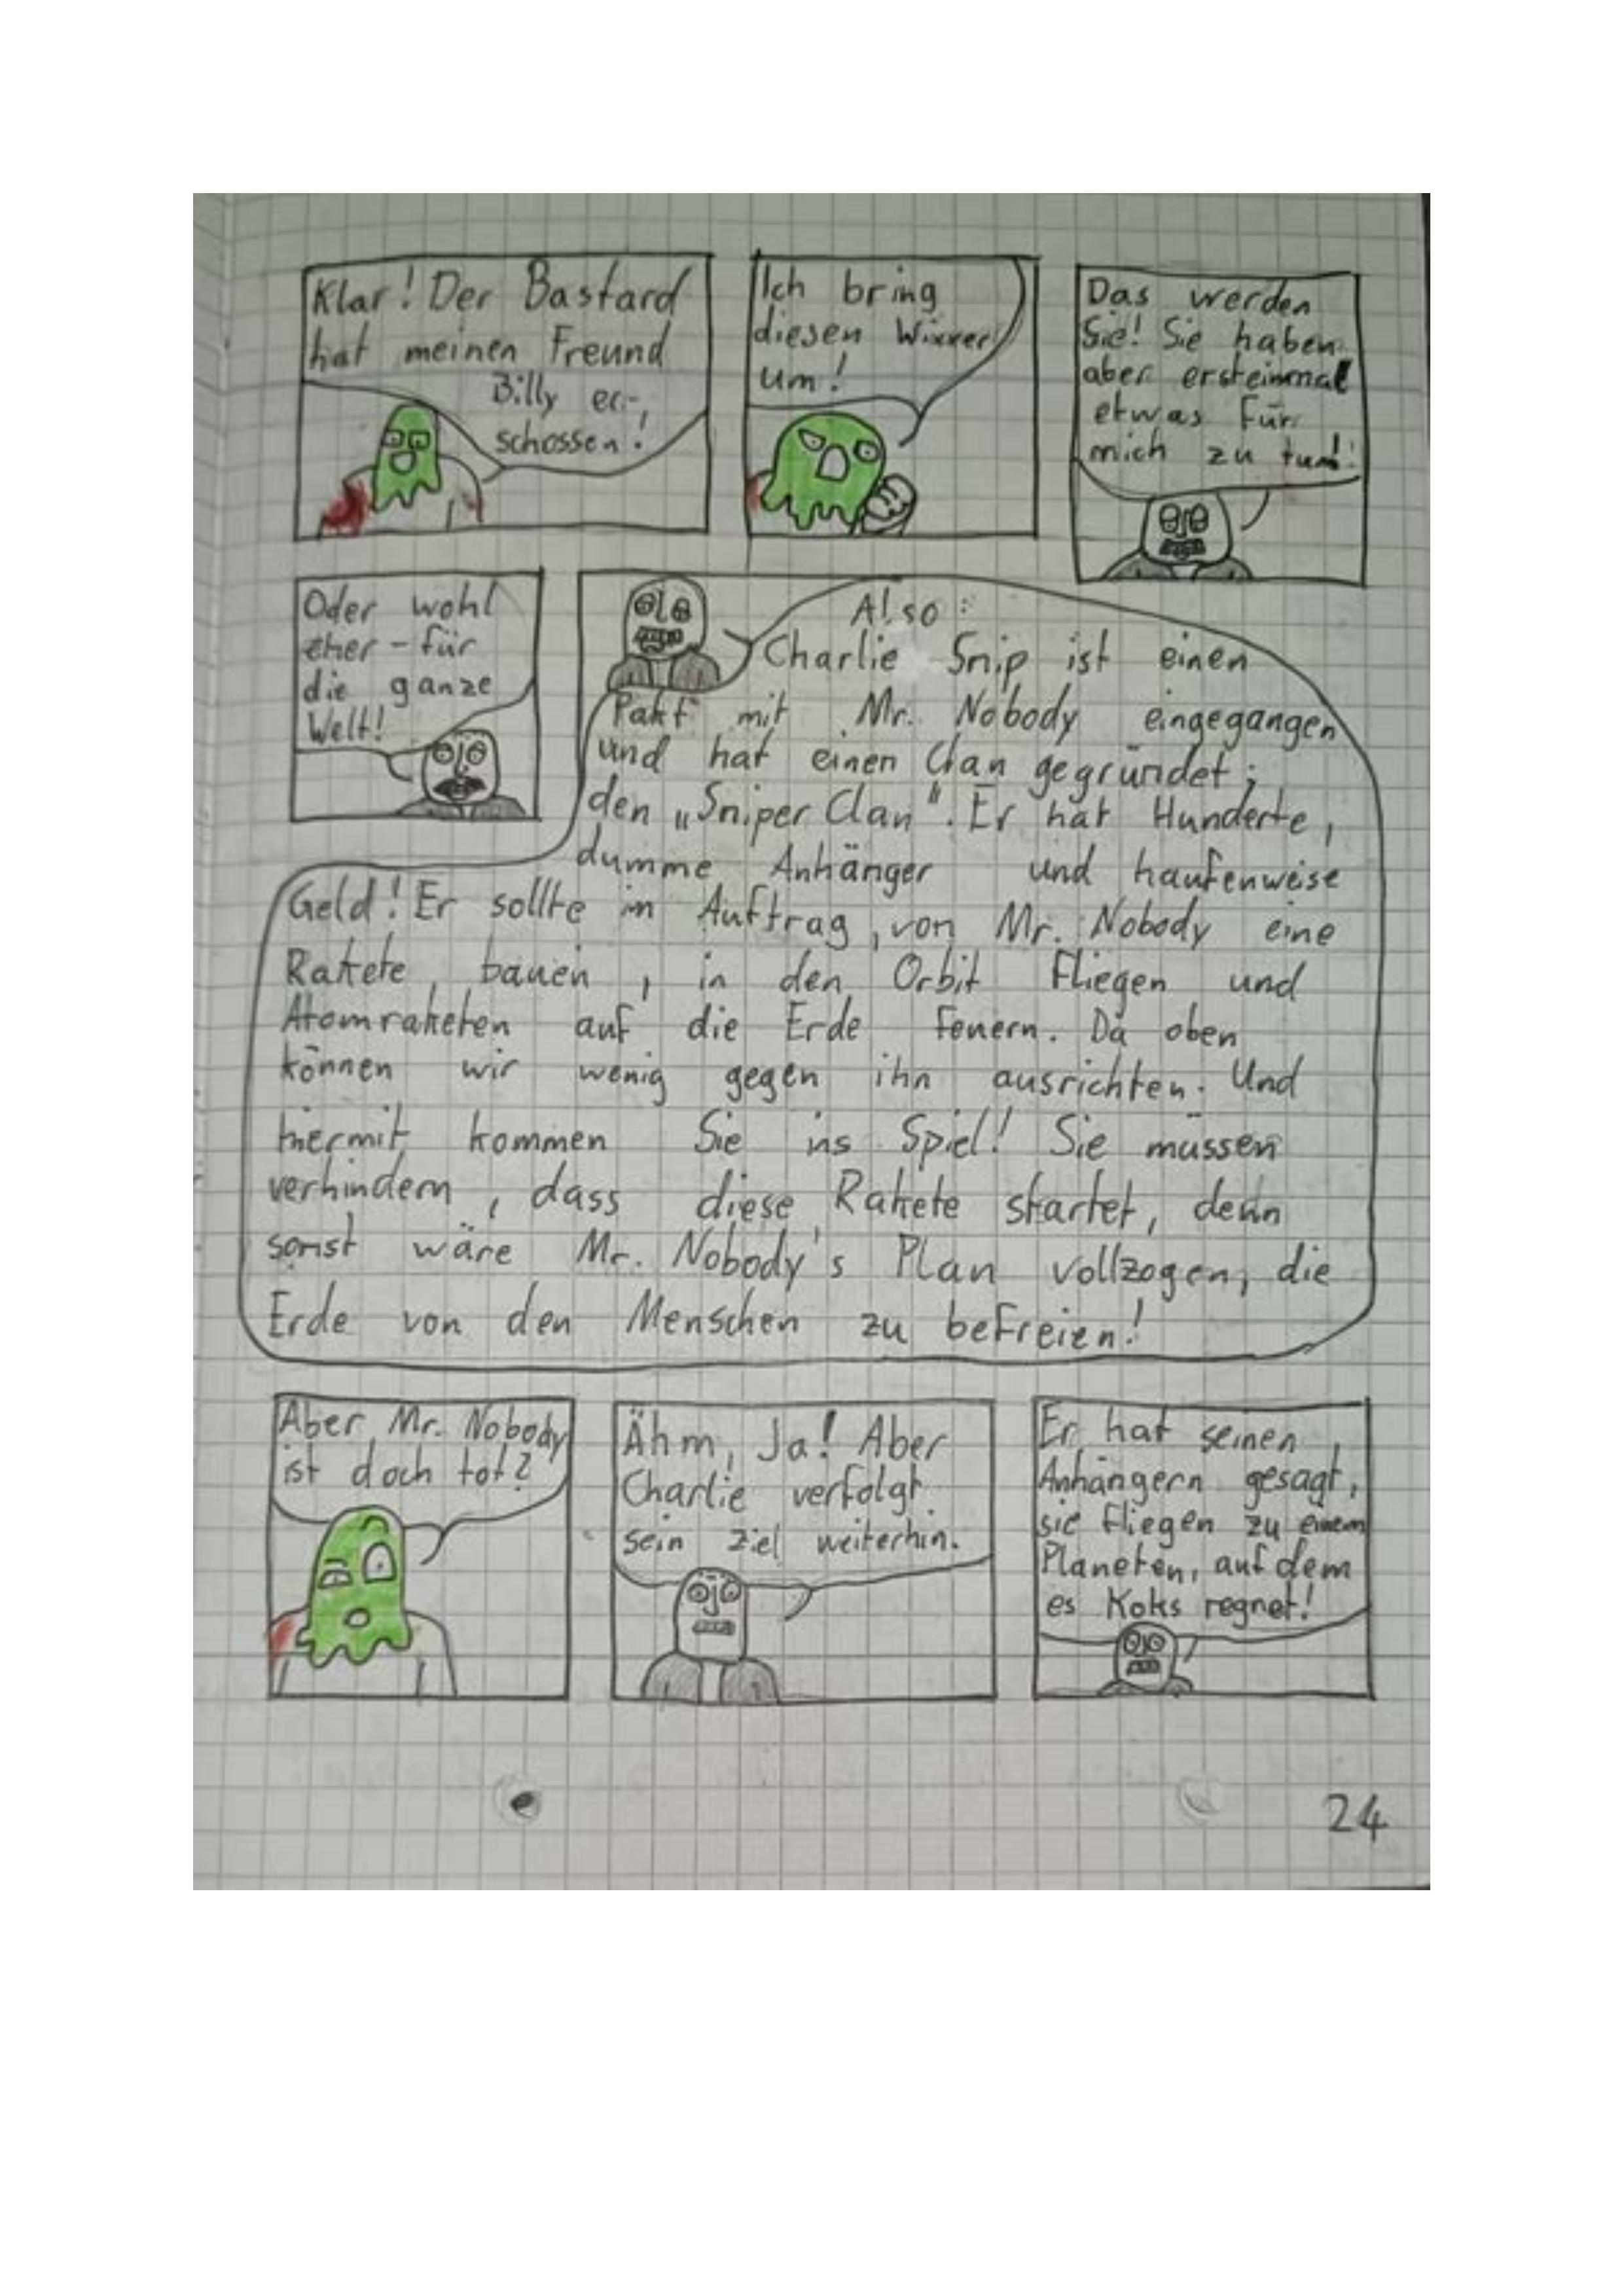 Klar! Der Bastard
hat meinen Freund
Billy er-
schossen!
Ich bring
diesen Wixxer
um!
Das werden
Sie! Sie haben
aber ersteinmal
etwas für
mich zu tun!
Oder wohl
eher - für
die ganze
Welt!
Also:
Charlie Snip ist einen
Pakt mit Mr. Nobody eingegangen
und hat einen Clan gegründet;
den „Sniper Clan". Er hat Hunderte,
dumme Anhänger und haufenweise
Geld! Er sollte im Auftrag, von Mr. Nobody eine
Rakete, bauen, in den Orbit fliegen und
Atomraketen auf die Erde feuern. Da oben
können wir wenig gegen ihn ausrichten. Und
hiermit kommen Sie ins Spiel! Sie müssen
verhindern, dass diese Rakete startet, denn
sonst wäre Mr. Nobody's Plan vollzogen, die
Erde von den Menschen zu befreien!
Aber Mr. Nobody
ist doch tot?
Ähm, Ja! Aber
Charlie verfolgt
sein Ziel weiterhin.
Er hat seinen
Anhängern gesagt,
sie fliegen zu einem
Planeten, auf dem
es Koks regnet!
24